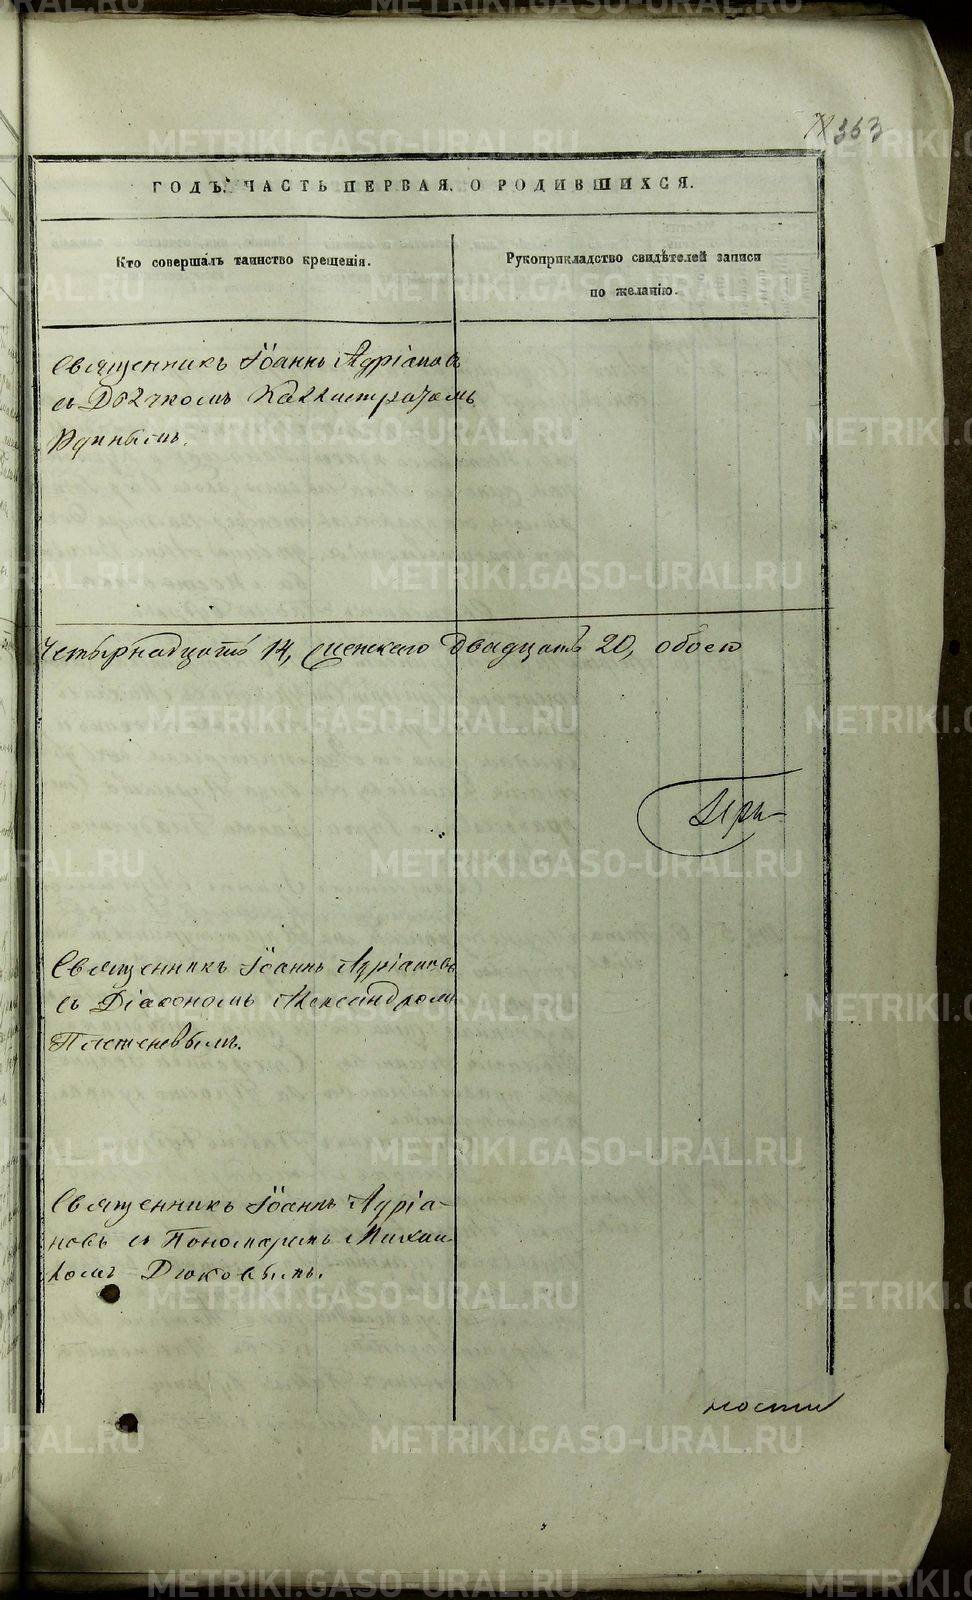 363
ГОДЪ. ЧАСТЬ ПЕРВАЯ, О РОДИВШИХСЯ.
Кто совершалъ таинство крещенія.
Рукоприкладство свидѣтелей записи
по желанію.
Священникъ Іоаннъ Адріановъ
съ Дьячкомъ Каллистратомъ
Четырнадцать 14, женскаго двадцать 20, обоего
Священникъ Іоаннъ Адріановъ
съ Діакономъ Александромъ
Плетеневымъ.
Священникъ Іоаннъ Адріа-
новъ съ Пономаремъ Михаи-
ломъ Дюковымъ.
METRIKI.GASO-URAL.RU